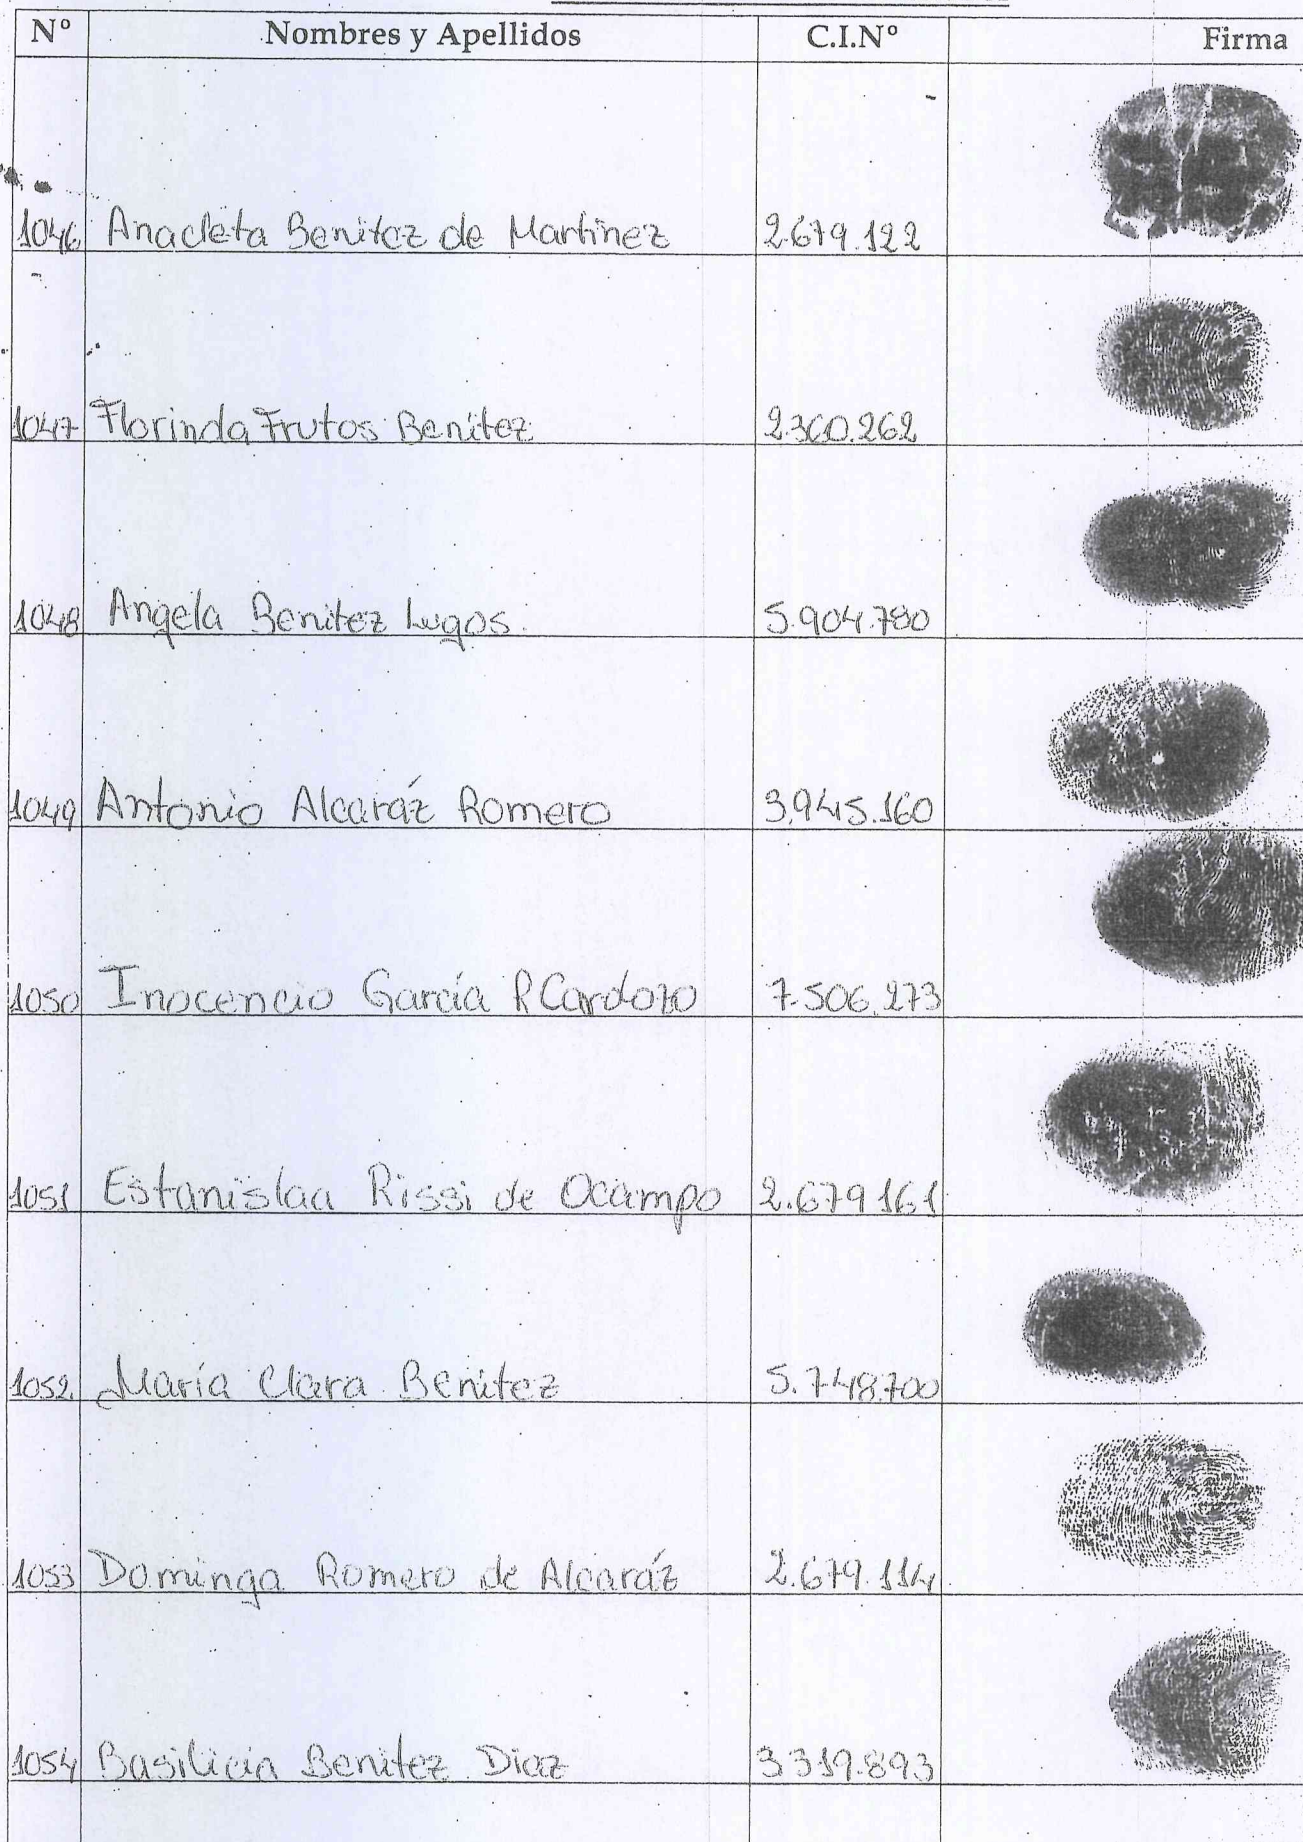 Nº Nombres y Apellidos C.I.Nº Firma
1046 Anacleta Benitez de Martinez 2.679.122
1047 Florinda Frutos Benitez 2.360.262
1048 Angela Benitez Lugos. 5.904.780
1049 Antonio Alcaráz Romero 3.945.160
1050 Inocencio García R Cardozo 7.506.273
1051 Estanislaa Rissi de Ocampo 2.679.161
1052 María Clara Benitez 5.748.700
1053 Dominga Romero de Alcaráz 2.679.114
1054 Basilicia Benitez Diaz 3.319.893